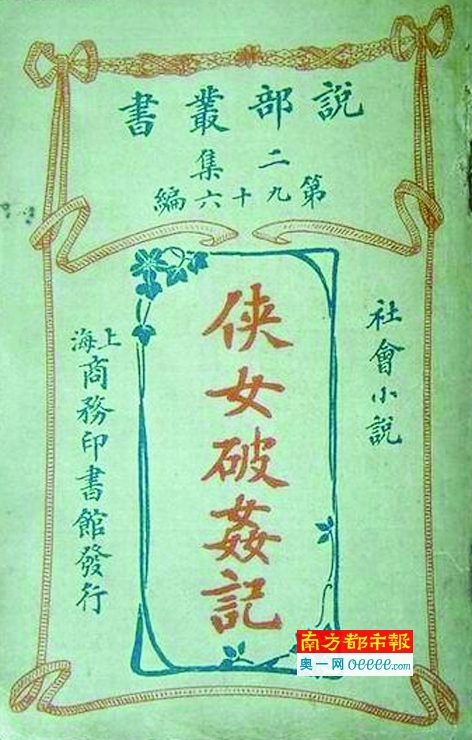 說部叢書
二集
第九十六編
社會小說
侠女破姦記
上海
商務印書館發行
南方都市報
奥一网 oeeee.com